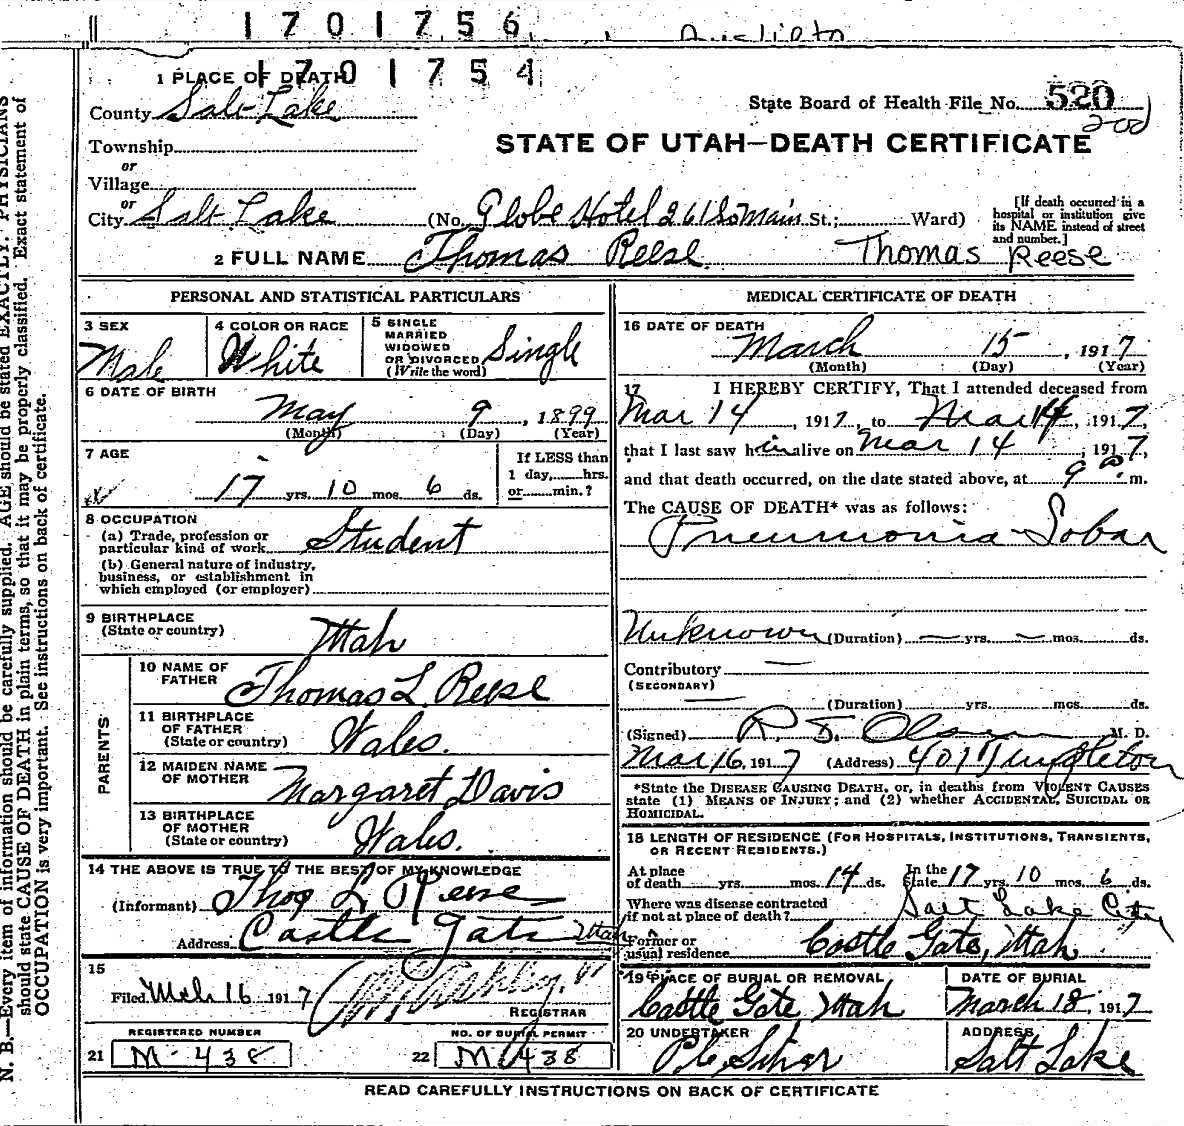 1701756
1701754
1 PLACE OF DEATH
County Salt Lake
State Board of Health File No. 520
200
Township
STATE OF UTAH—DEATH CERTIFICATE
or
Village
or
City Salt Lake (No. Globe Hotel 261 So Main St.; Ward)
[If death occurred in a hospital or institution give its NAME instead of street and number.]
2 FULL NAME Thomas Reese. Thomas Reese
PERSONAL AND STATISTICAL PARTICULARS
3 SEX
Male
4 COLOR OR RACE
White
5 SINGLE
MARRIED
WIDOWED
OR DIVORCED
(Write the word)
Single
6 DATE OF BIRTH
May 9, 1899
(Month) (Day) (Year)
7 AGE
17 yrs. 10 mos. 6 ds.
If LESS than
1 day,......hrs.
or......min.?
8 OCCUPATION
(a) Trade, profession or
particular kind of work Student
(b) General nature of industry,
business, or establishment in
which employed (or employer)
9 BIRTHPLACE
(State or country)
Utah
PARENTS
10 NAME OF
FATHER
Thomas L. Reese
11 BIRTHPLACE
OF FATHER
(State or country)
Wales.
12 MAIDEN NAME
OF MOTHER
Margaret Davis
13 BIRTHPLACE
OF MOTHER
(State or country)
Wales.
14 THE ABOVE IS TRUE TO THE BEST OF MY KNOWLEDGE
(Informant) Thos L Reese
Address Castle Gate Utah
15
Filed Mch 16 1917
REGISTRAR
REGISTERED NUMBER
21 M-438
NO. OF BURIAL PERMIT
22 M 438
MEDICAL CERTIFICATE OF DEATH
16 DATE OF DEATH
March 15, 1917
(Month) (Day) (Year)
17 I HEREBY CERTIFY, That I attended deceased from
Mar 14, 1917, to Mar 14, 1917,
that I last saw him alive on Mar 14, 1917,
and that death occurred, on the date stated above, at 9 a.m.
The CAUSE OF DEATH* was as follows:
Pneumonia—Lobar
Unknown (Duration) — yrs. — mos. ds.
Contributory —
(SECONDARY)
— (Duration) yrs. mos. ds.
(Signed) R. J. Olsen M. D.
Mar 16, 1917 (Address) Templeton
*State the DISEASE CAUSING DEATH, or, in deaths from VIOLENT CAUSES
state (1) MEANS OF INJURY; and (2) whether ACCIDENTAL, SUICIDAL OR
HOMICIDAL.
18 LENGTH OF RESIDENCE (FOR HOSPITALS, INSTITUTIONS, TRANSIENTS,
OR RECENT RESIDENTS.)
At place
of death yrs. mos. 14 ds.
In the
State 17 yrs. 10 mos. 6 ds.
Where was disease contracted
if not at place of death? Salt Lake City
Former or
usual residence Castle Gate, Utah
19 PLACE OF BURIAL OR REMOVAL
Castle Gate Utah
DATE OF BURIAL
March 18, 1917
20 UNDERTAKER
ADDRESS
Salt Lake
READ CAREFULLY INSTRUCTIONS ON BACK OF CERTIFICATE
N. B.—Every item of information should be carefully supplied. AGE should be stated EXACTLY. PHYSICIANS
should state CAUSE OF DEATH in plain terms, so that it may be properly classified. Exact statement of
OCCUPATION is very important. See instructions on back of certificate.